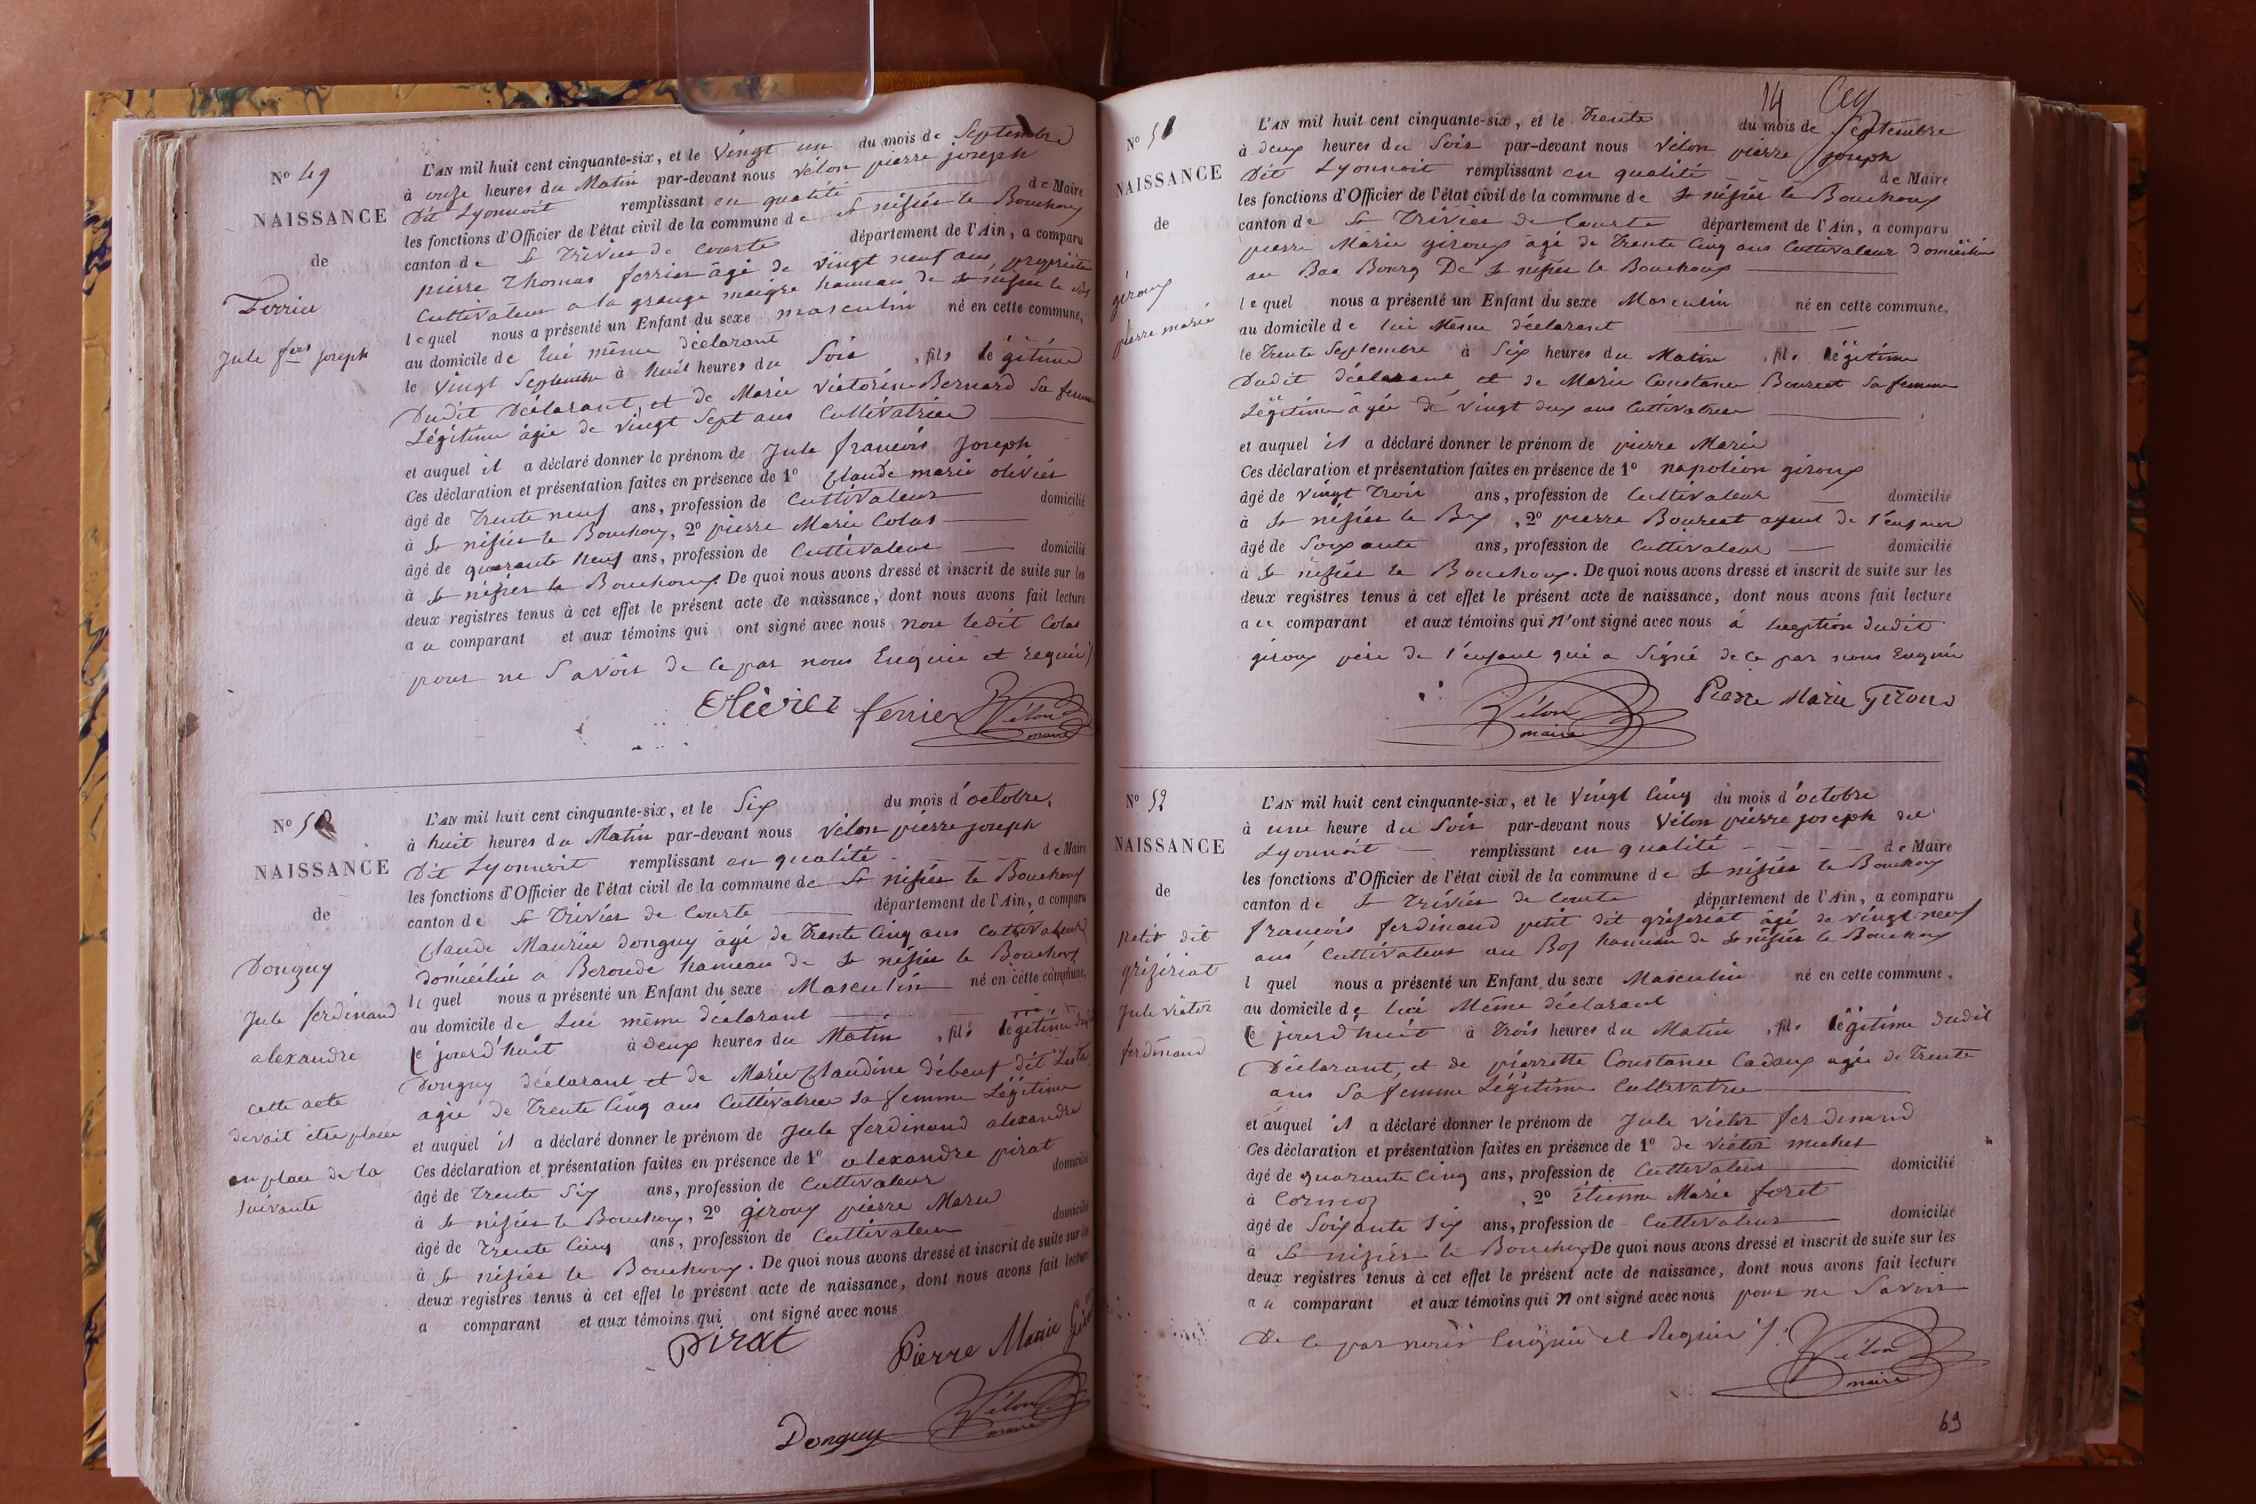 N° 49
NAISSANCE
de
Ferrier
Jule fois Joseph
L'AN mil huit cent cinquante-six, et le vingt un du mois de Septembre
à onze heures du Matin par-devant nous Vélon pierre joseph
Dit Lyonnoit remplissant en qualité de Maire
les fonctions d'Officier de l'état civil de la commune de St nisier le Bouchoux
canton de St Trivier de Courte département de l'Ain, a comparu
pierre Thomas ferrier âgé de vingt neuf ans, propriète
Cultivateur a la grange maigre hameau de St nisier le
lequel nous a présenté un Enfant du sexe masculin né en cette commune,
au domicile de lui même déclarant
le vingt Septembre à huit heures du Soir, fils légitime
Dudit Déclarant, et de Marie Victorine Bernard Sa femme
Légitime âgée de vingt Sept ans Cultivatrice
et auquel il a déclaré donner le prénom de Jule francois Joseph
Ces déclaration et présentation faites en présence de 1° Claude marie olivier
âgé de trente neuf ans, profession de Cultivateur domicilié
à St nisier le Bouchoux, 2° pierre Marie Colas
âgé de quarante neuf ans, profession de Cultivateur domicilié
à St nisier le Bouchoux. De quoi nous avons dressé et inscrit de suite sur les
deux registres tenus à cet effet le présent acte de naissance, dont nous avons fait lecture
au comparant et aux témoins qui ont signé avec nous non ledit Colas
pour ne Savoir de Ce par nous Enquie et requie
Olivier ferrier Vélon
maire
N° 50
NAISSANCE
de
Donguy
Jule ferdinand
alexandre
cette acte
devait être placée
en place de la
Suivante
L'AN mil huit cent cinquante-six, et le Six du mois d'octobre,
à huit heures du Matin par-devant nous Vélon pierre joseph
Dit Lyonnoit remplissant en qualité de Maire
les fonctions d'Officier de l'état civil de la commune de St nisier le Bouchoux
canton de St Trivier de Courte département de l'Ain, a comparu
Claude Maurice Donguy âgé de trente Cinq ans Cultivateur
domicilié a Beroude hameau de St nisier le Bouchoux
lequel nous a présenté un Enfant du sexe Masculin né en cette commune,
au domicile de Lui même déclarant
Ce jourd'huit à deux heures du Matin, fils légitime dudit
Donguy déclarant et de Marie Claudine débeuf dit
agée de trente Cinq ans Cultivatrice sa femme Légitime
et auquel il a déclaré donner le prénom de Jule ferdinand alexandre
Ces déclaration et présentation faites en présence de 1° alexandre pirat
âgé de trente Six ans, profession de Cultivateur domicilié
à St nisier le Bouchoux, 2° giroux pierre Marie
âgé de trente Cinq ans, profession de Cultivateur domicilié
à St nisier le Bouchoux. De quoi nous avons dressé et inscrit de suite sur les
deux registres tenus à cet effet le présent acte de naissance, dont nous avons fait lecture
a comparant et aux témoins qui ont signé avec nous
Pirat Pierre Marie
Donguy Vélon
maire
14
N° 51
NAISSANCE
de
giroux
pierre marie
L'AN mil huit cent cinquante-six, et le Trente du mois de Septembre
à deux heures du Soir par-devant nous Vélon pierre joseph
Dit Lyonnoit remplissant en qualité de Maire
les fonctions d'Officier de l'état civil de la commune de St nisier le Bouchoux
canton de St Trivier de Courte département de l'Ain, a comparu
pierre Marie giroux âgé de trente Cinq ans Cultivateur domicilié
au Bourg De St nisier le Bouchoux
lequel nous a présenté un Enfant du sexe Masculin né en cette commune,
au domicile de lui Même déclarant
le trente Septembre à Six heures du Matin, fils légitime
Dudit déclarant et de Marie Constance Bourcet Sa femme
Légitime âgée de vingt deux ans Cultivatrice
et auquel il a déclaré donner le prénom de pierre Marie
Ces déclaration et présentation faites en présence de 1° napoléon giroux
âgé de vingt trois ans, profession de Cultivateur domicilié
à St nisier le Bx, 2° pierre Bourcet ayeul de l'enfant
âgé de Soixante ans, profession de Cultivateur domicilié
à St nisier le Bouchoux. De quoi nous avons dressé et inscrit de suite sur les
deux registres tenus à cet effet le présent acte de naissance, dont nous avons fait lecture
au comparant et aux témoins qui n'ont signé avec nous à lexeption dudit
giroux père de l'enfant qui a Signé de Ce par nous Enquie
Vélon Pierre Marie Giroux
maire
N° 52
NAISSANCE
de
petit dit
gréfériat
Jule victor
ferdinand
L'AN mil huit cent cinquante-six, et le vingt Cinq du mois d'octobre
à une heure du Soir par-devant nous Vélon pierre joseph dit
Lyonnoit remplissant en qualité de Maire
les fonctions d'Officier de l'état civil de la commune de St nisier le Bouchoux
canton de St Trivier de Courte département de l'Ain, a comparu
francois ferdinand petit dit gréfériat âgé de vingt neuf
ans Cultivateur au hameau de St nisier le Bouchoux
l quel nous a présenté un Enfant du sexe Masculin né en cette commune,
au domicile de lui Même déclarant
Ce jourd'huit à Trois heures du Matin, fils légitime dudit
Déclarant, et de pierrette Constance Cadoux agée de trente
ans Sa femme Légitime Cultivatrice
et auquel il a déclaré donner le prénom de Jule victor ferdinand
Ces déclaration et présentation faites en présence de 1° de victor michel
âgé de quarante Cinq ans, profession de Cultivateur domicilié
à Cormoz, 2° étienne Marie foret
âgé de Soixante Six ans, profession de Cultivateur domicilié
à St nisier le Bouchoux De quoi nous avons dressé et inscrit de suite sur les
deux registres tenus à cet effet le présent acte de naissance, dont nous avons fait lecture
au comparant et aux témoins qui n ont signé avec nous pour ne Savoir
De Ce par nous Enquie et Requie
Vélon
maire
69